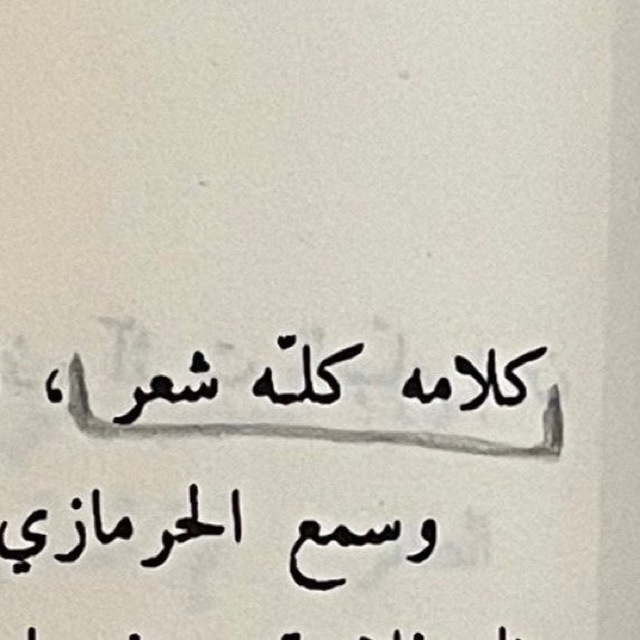 كلامه كلّه شعر ،
وسمع الحرمازي